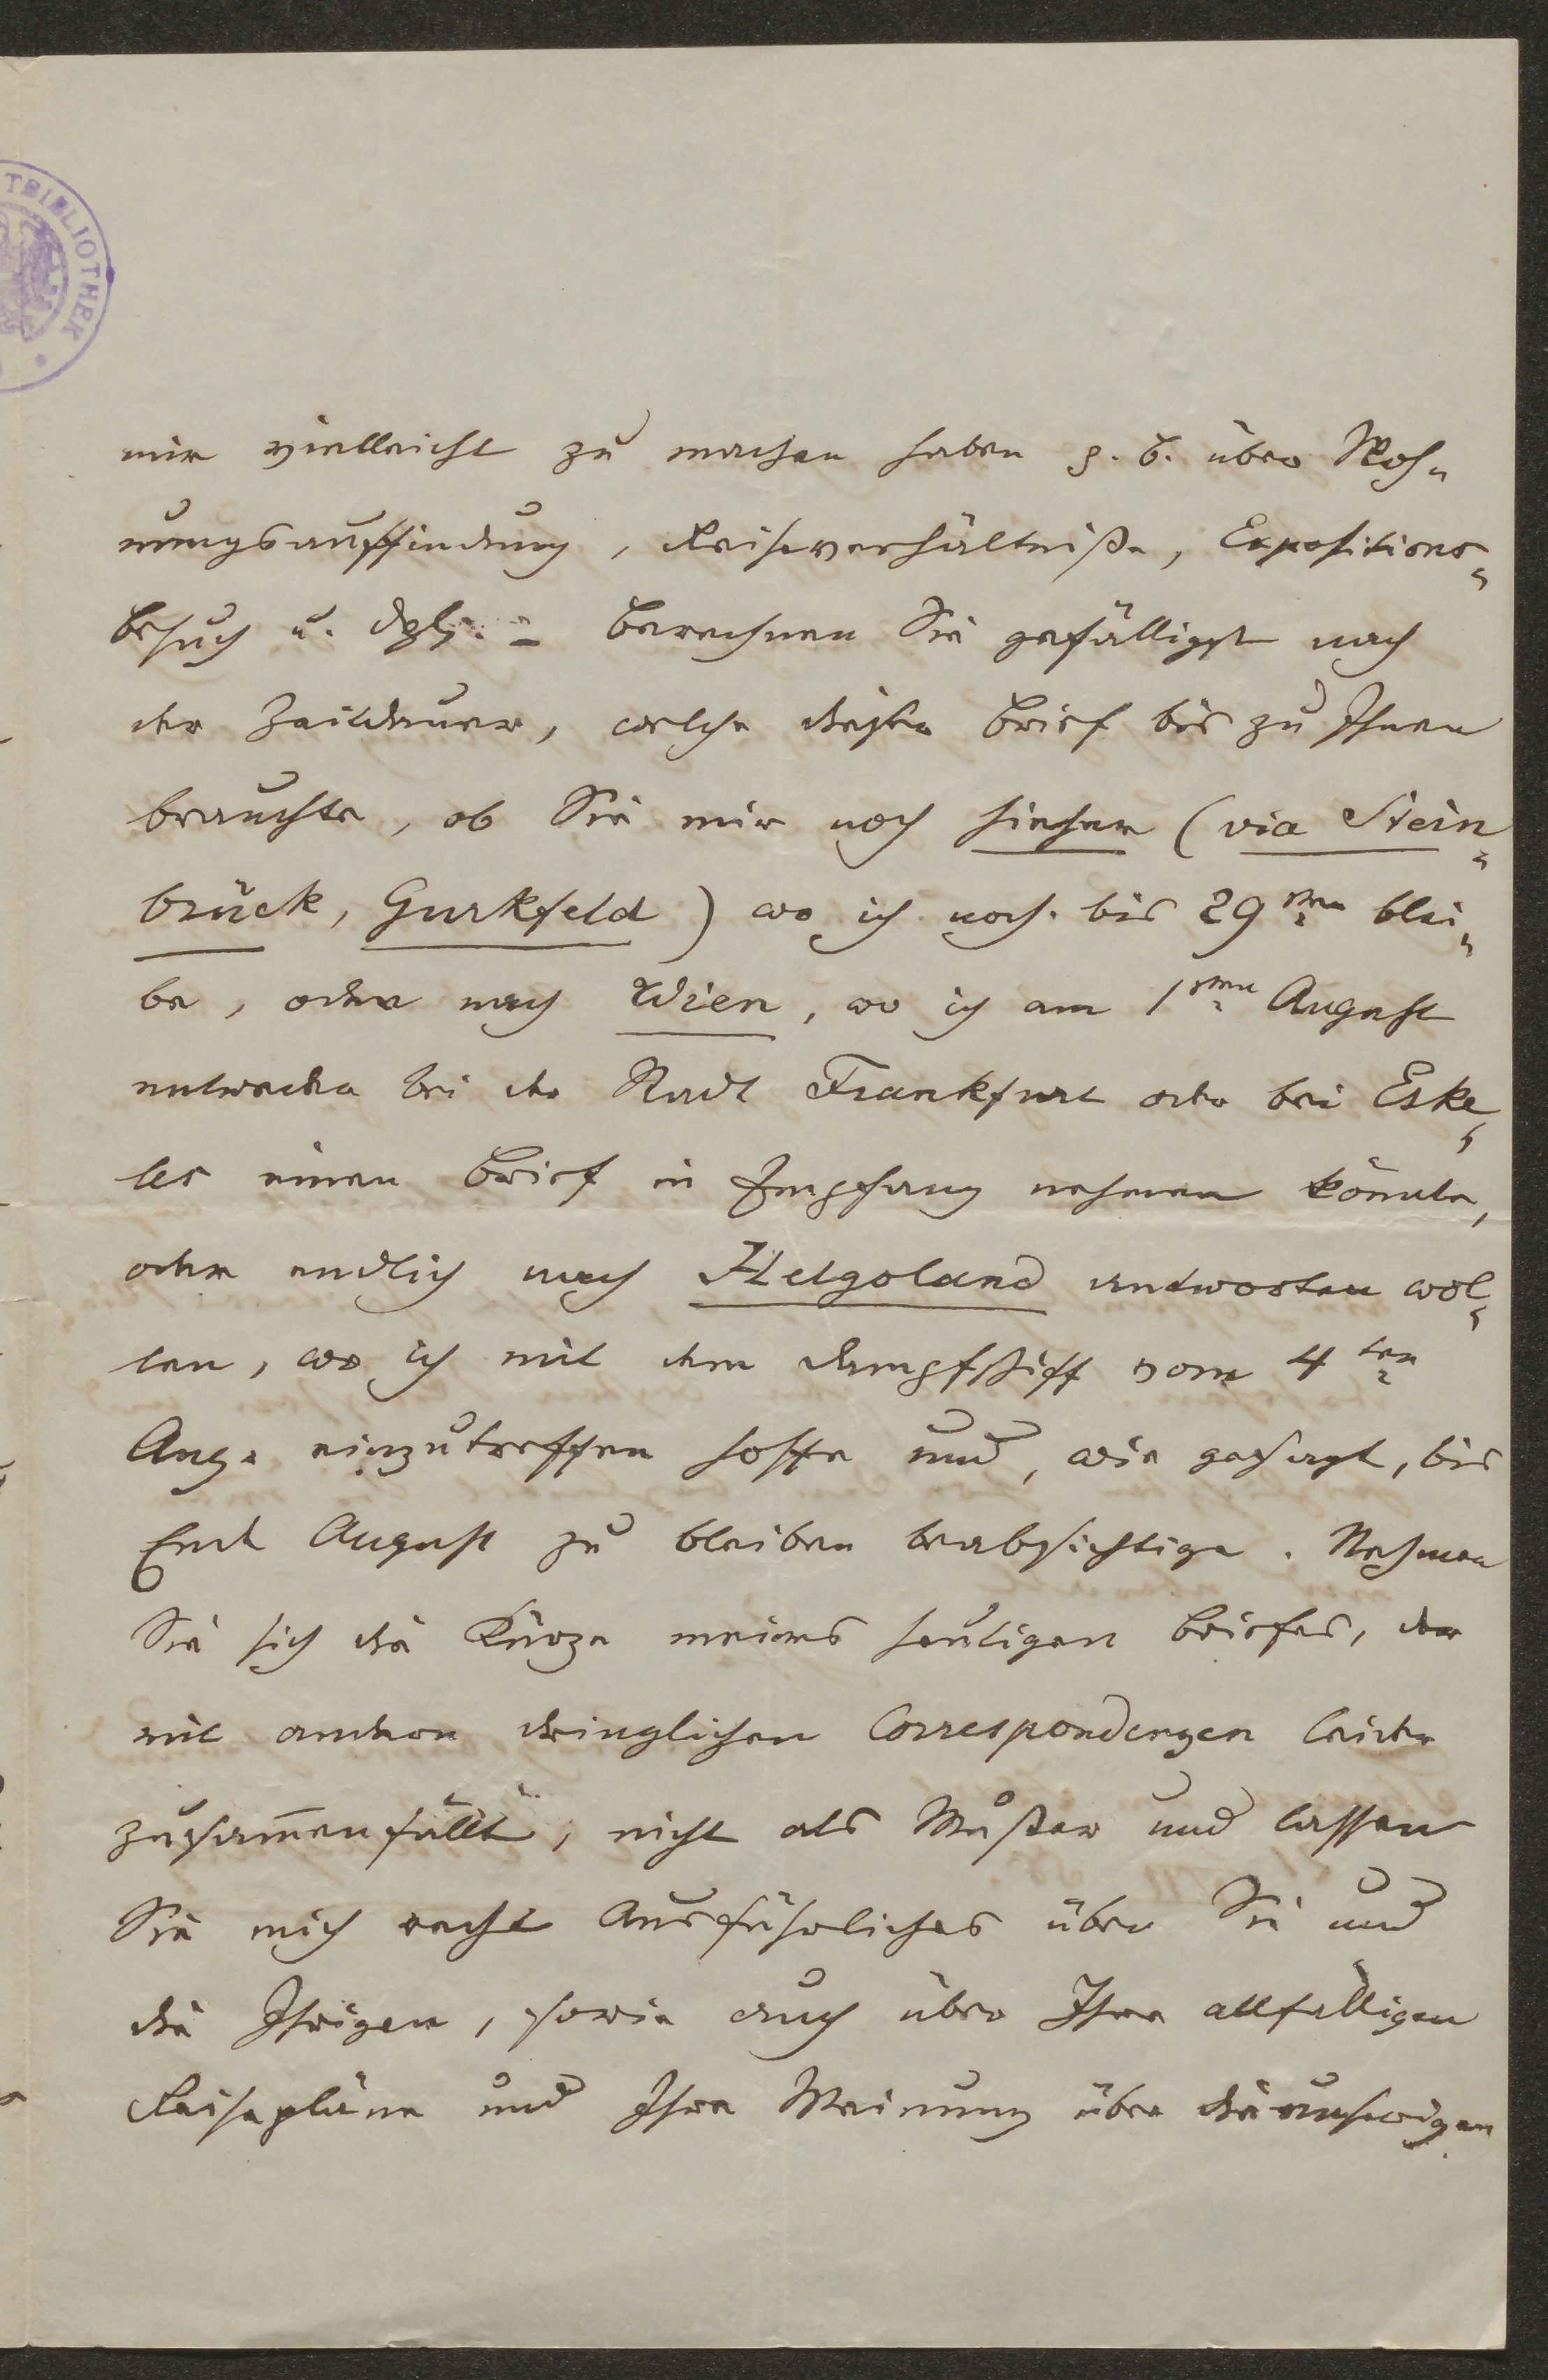 TBIBLIOTHEK
mir vielleicht zu machen haben z. B. über Woh-
nungsauffindung, Reiseverhältniße, Expositions-
besuch u. dglch. – Berechnen Sie gefälligst nach
der Zeitdauer, welche dieser Brief bis zu Ihnen
brauchte, ob Sie mir noch hieher (via Stein-
brück, Gurkfeld) wo ich noch bis 29sten blei-
be, oder nach Wien, wo ich am 1sten August
entweder bei der Stadt Frankfurt oder bei Eske-
les einen Brief in Empfang nehmen könnte,
oder endlich nach Helgoland antworten wol-
len, wo ich mit dem Dampfschiff vom 4ten
Aug. einzutreffen hoffe und, wie gesagt, bis
Ende August zu bleiben beabsichtige. Nehmen
Sie sich die Kürze meines heutigen Briefes, der
mit andern dringlichen Correspondenzen leider
zusam̄enfällt, nicht als Muster und lassen
Sie mich recht Ausführliches über Sie und
die Ihrigen, sowie auch über Ihre allfälligen
Reisepläne und Ihre Meinung über die